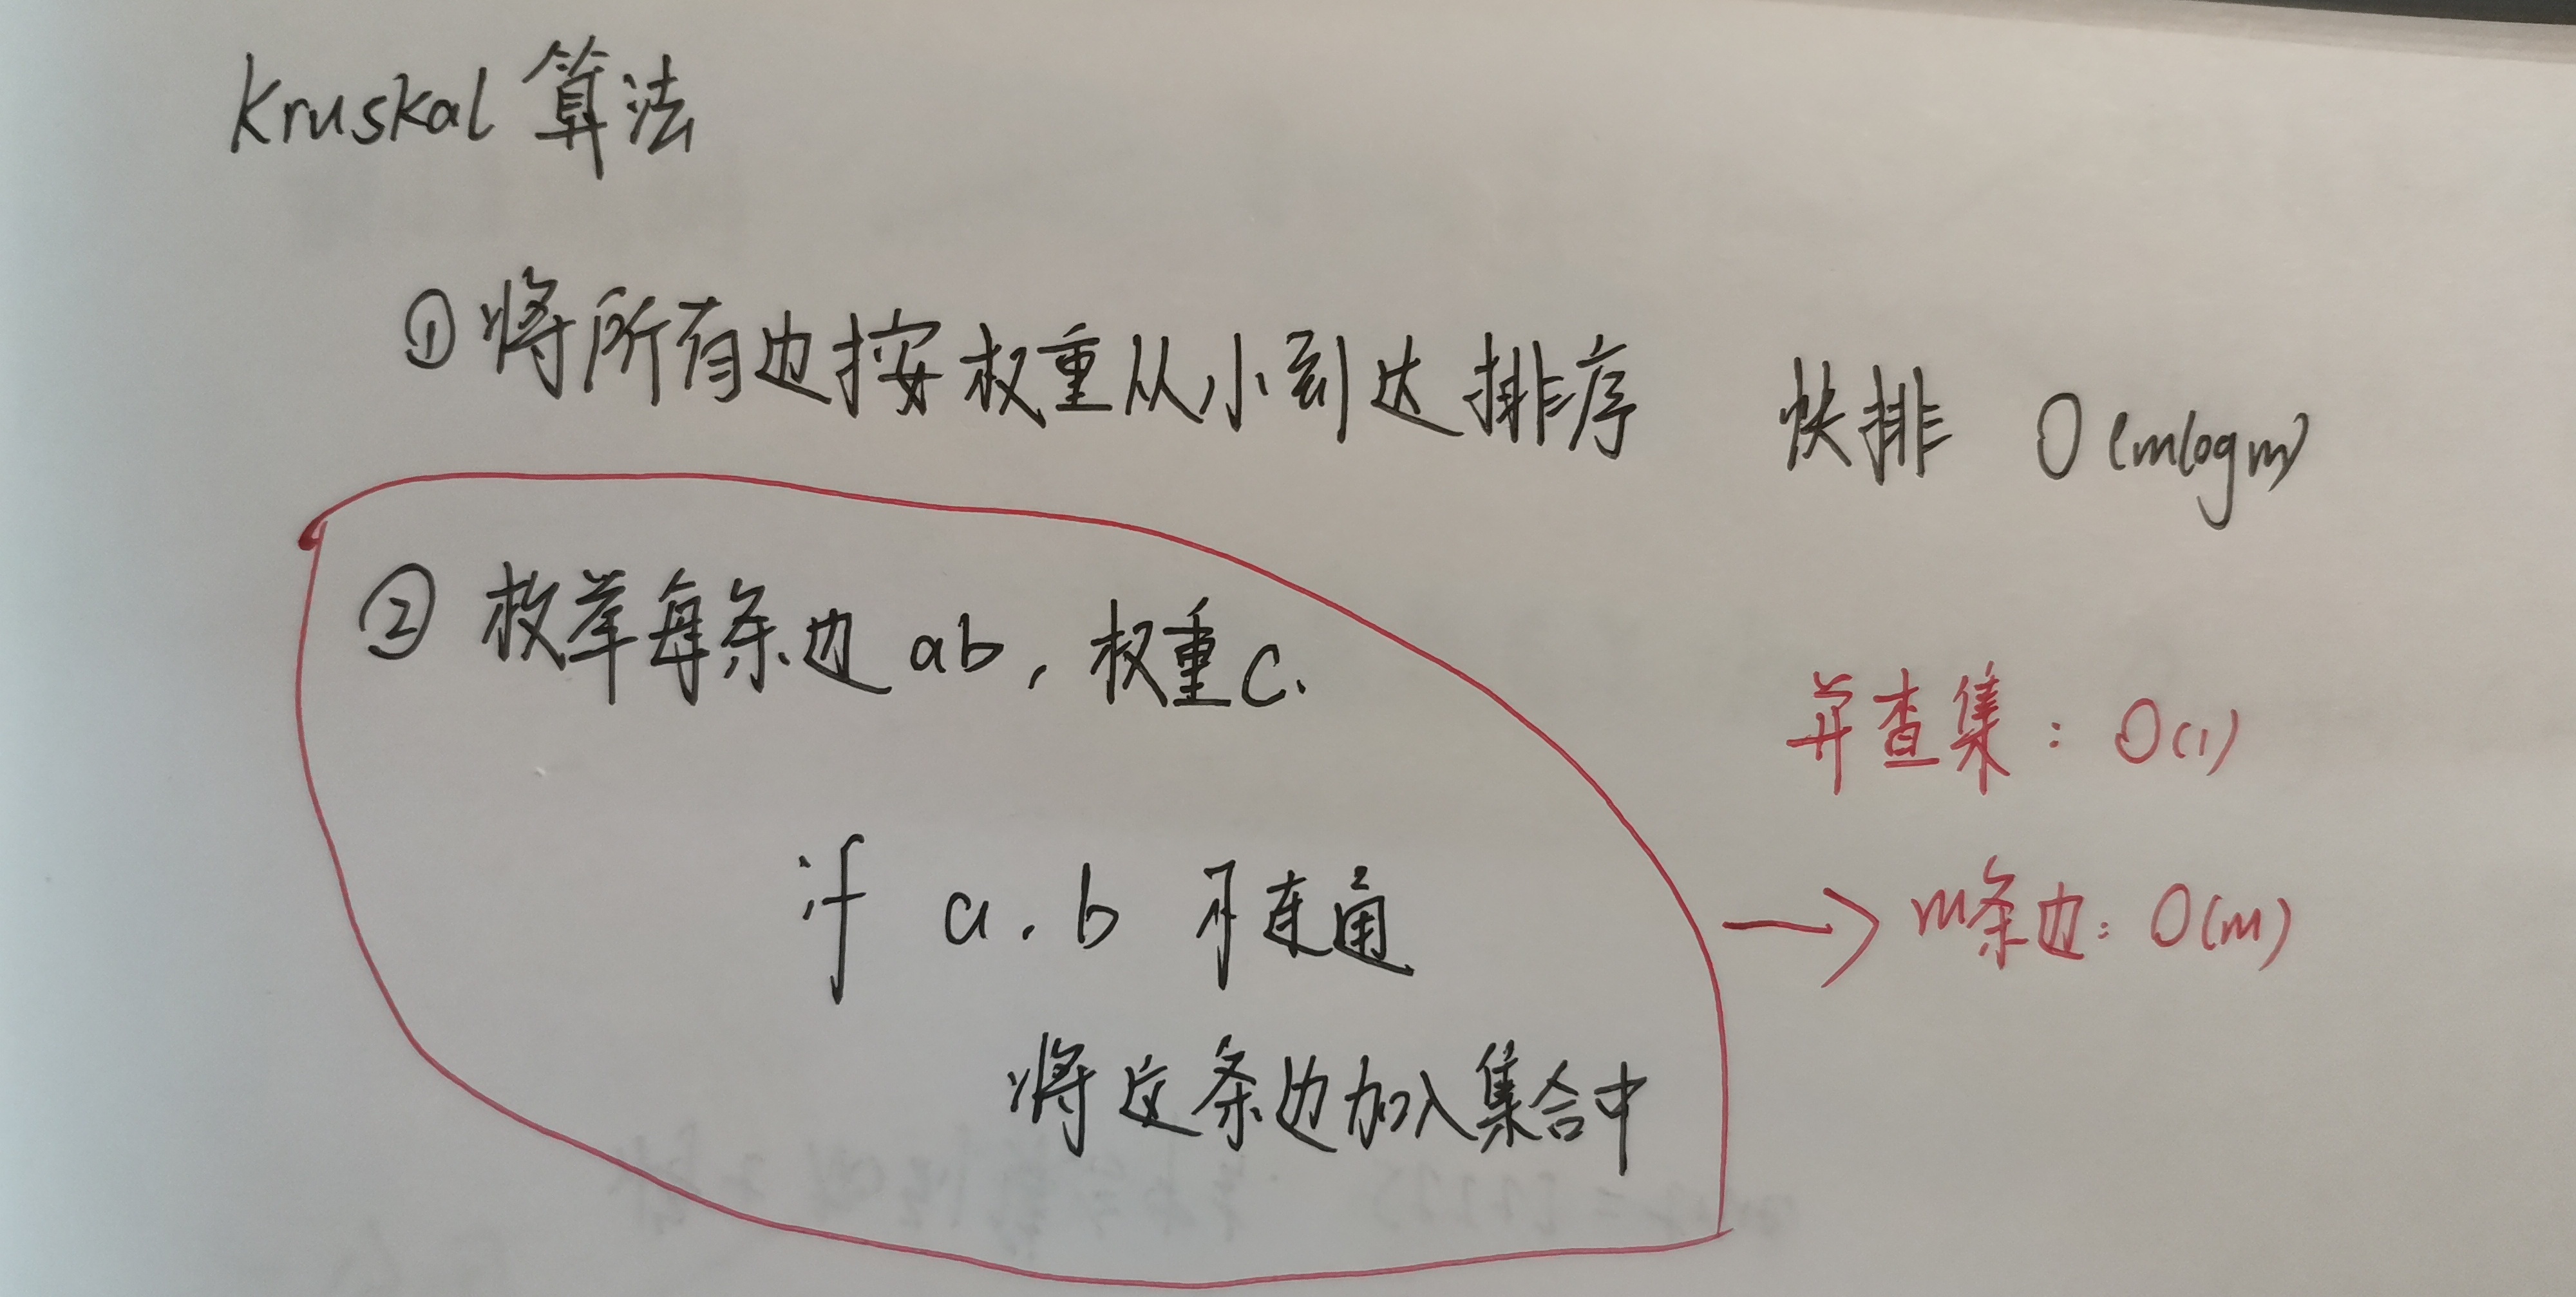 Kruskal 算法
① 将所有边按权重从小到达排序 快排 O(mlogm)
② 枚举每条边 ab, 权重c.
并查集: O(1)
if a.b 不连通
→ m条边: O(m)
将这条边加入集合中